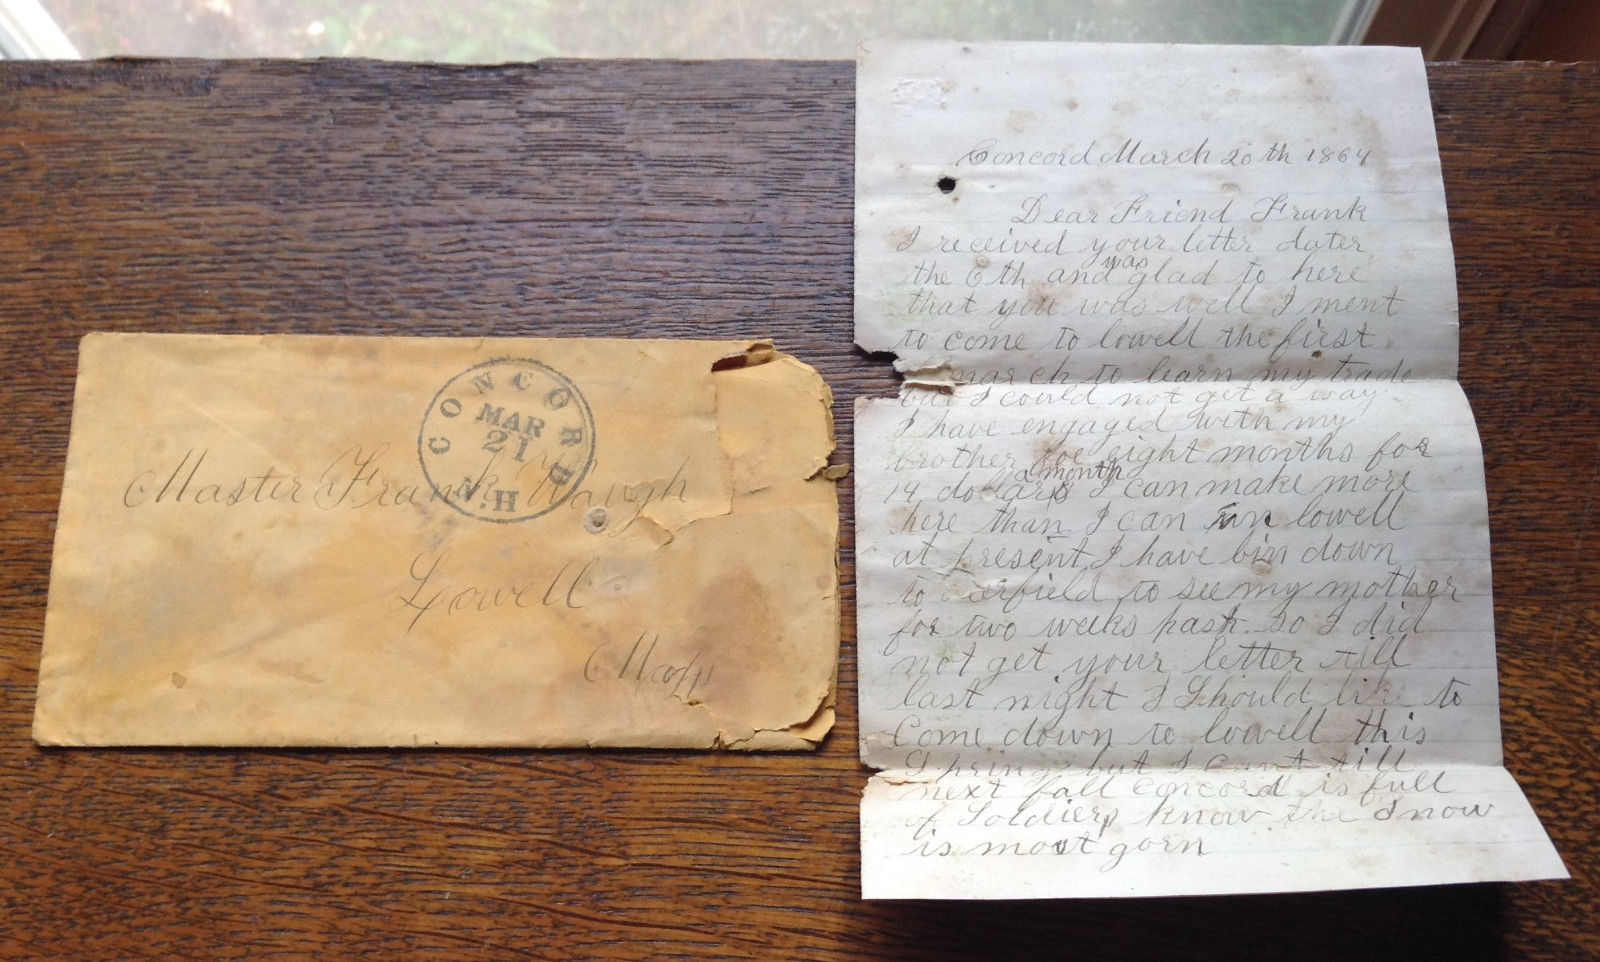 CONCORD
MAR
21
N.H
Master Frank Waugh
Lowell
Mass
Concord March 20th 1864
Dear Friend Frank
I received your letter dater
the 6th and was glad to here
that you was well I ment
to come to lowell the first
march to learn my trade
but I could not get a way
I have engaged with my
brother for eight months for
14 dollars a month I can make more
here than I can in lowell
at present I have bin down
to deerfield to see my mother
for two weeks past so I did
not get your letter till
last night I Should like to
Come down to lowell this
Spring but I cant till
next fall Concord is full
of Soldiers know the Snow
is most gorn